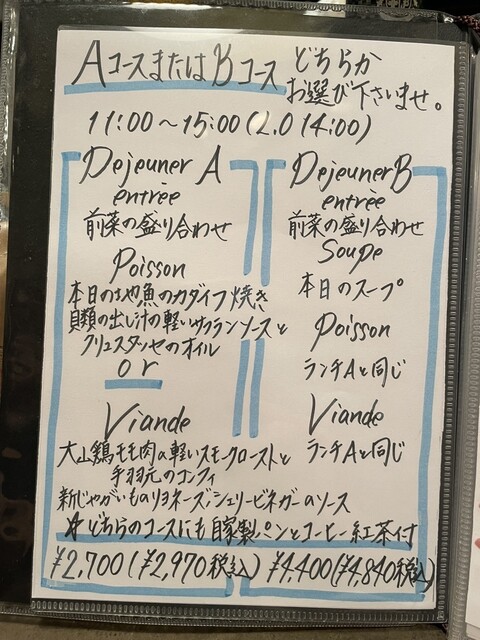 Aコースまたは Bコース どちらか
お選び下さいませ。
11:00～15:00(L.O 14:00)
Dejeuner A
entrèe
前菜の盛り合わせ
Poisson
本日の地魚のカダイフ焼き
貝類の出し汁の軽いサフランソースと
クリュスタッセのオイル
or
Viande
大山鶏モモ肉の軽いスモークローストと
手羽元のコンフィ
新じゃがいものリヨネーズ:シェリービネガーのソース
Dejeuner B
entrèe
前菜の盛り合わせ
Soupe
本日のスープ
Poisson
ランチAと同じ
Viande
ランチAと同じ
☆どちらのコースにも自家製パンとコーヒー紅茶付
¥2,700(¥2,970税込) ¥4,400(¥4,840税込)